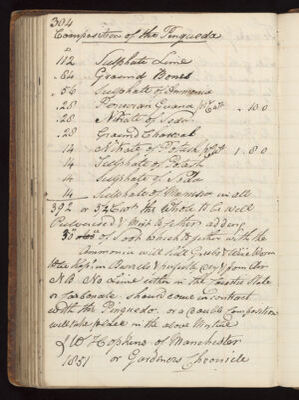 304
Composition of the Pinguedo
112 Sulphate Lime
.84 Ground Bones
.56 Sulphate of Ammonia
.28 Peruvian Guano 10.0
.28 Nitrate of Soda
.28 Ground Charcoal
14 Nitrate of Potash 1.8.0
14 Sulphate of Potash
14 Sulphate of Soda
14 Sulphate of in all
392 or 3½ Cwt the Whole to be well
Pulverized & Mixt together adding
of Soot which together with the
Ammonia will kill Grubs & Wire Worm
to be kept in Barrels perfectly dry & for Use
N.B. No Lime either in the Caustic State
or Carbonate should come in contact
with the Pinguedo or a Decomposition
will take place in the above Mixture
W Hopkins of Manchester
1851 or Gardners Chronicle